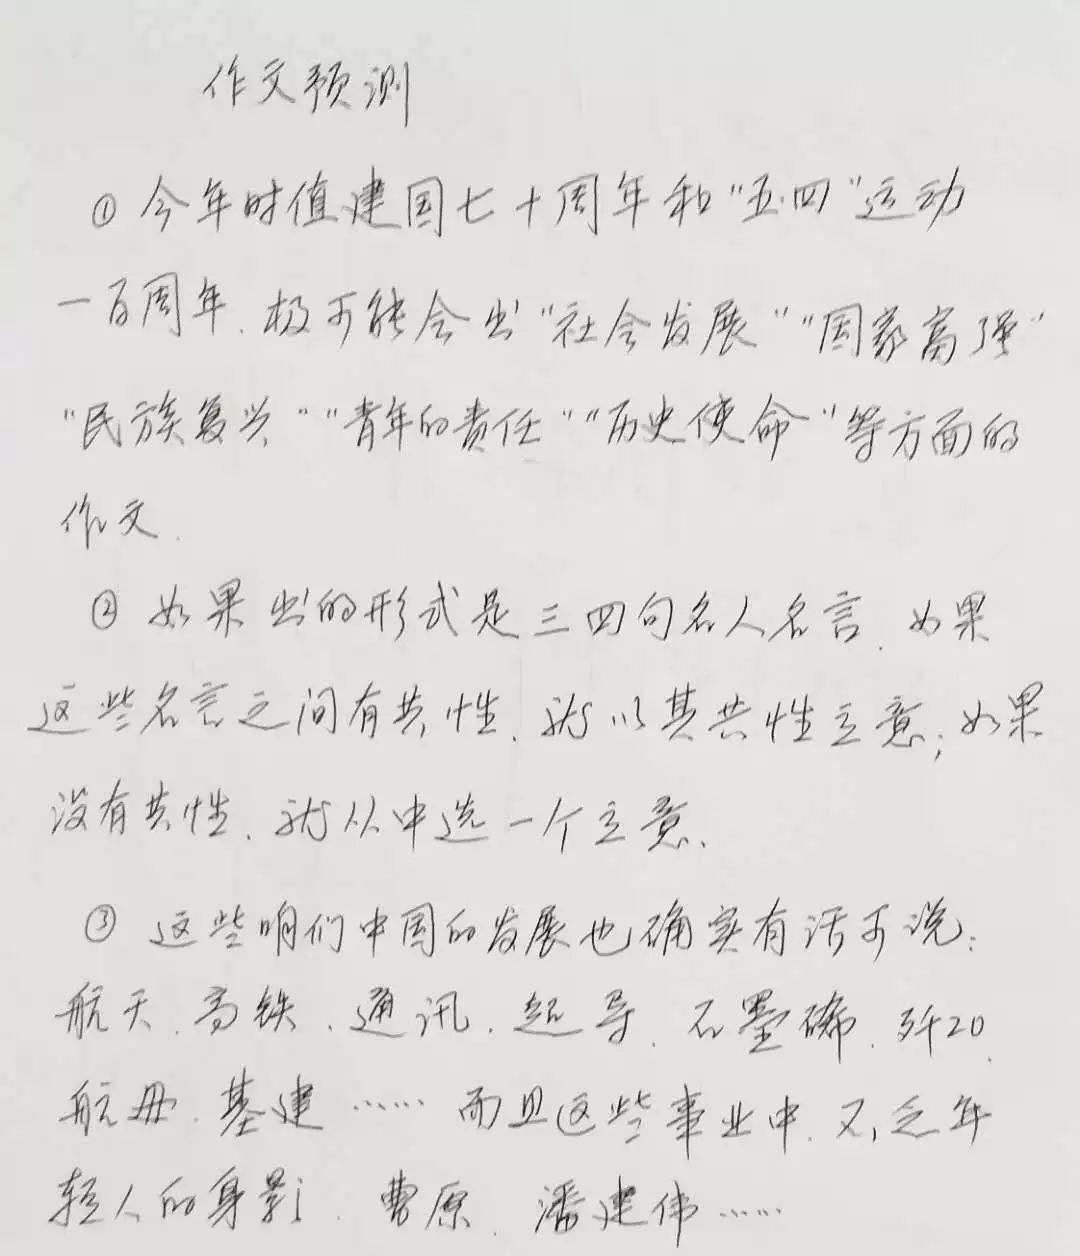 作文预测
① 今年时值建国七十周年和“五·四”运动
一百周年、极可能会出“社会发展”“国家富强”
“民族复兴”“青年的责任”“历史使命”等方面的
作文.
② 如果出的形式是三四句名人名言、如果
这些名言之间有共性、就以其共性立意；如果
没有共性、就从中选一个立意、
③ 这些咱们中国的发展也确实有话可说：
航天、高铁、通讯、超导、石墨稀、歼20、
航母、基建……而且这些事业中、不乏年
轻人的身影、曹原、潘建伟……